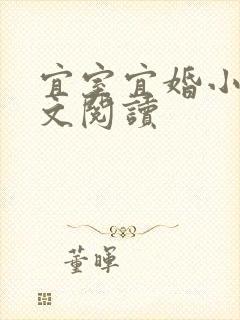 宜室宜婚小
文閱讀
董暉